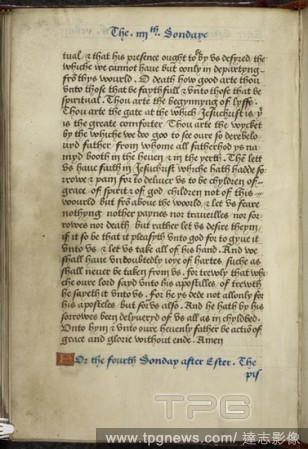 The iiijth. Sondaye
tual, & that his presence ought to be by us desyred the
whiche we cannot have but only in departyng
fro this wourld. O death how good arte thou
unto those that be faythfull & unto those that be
spiritual. Thou arte the begynnyng of lyffe.
Thou arte the gate at the which Jesuchrist is yt
is the greate comforter. Thou arte the wycket
by the whiche we doo goo to see oure so derebelo-
uyd father from whome all fatherhod ys na-
myd booth in the heven & in the yerth. Then lett
us have faith in Jesuchrist which hath hadde so-
rowe & payn for to deliver us to be chyldren of
grace of spirit & of god children not of this
wourld but fro above the woorld, & let us feare
nothyng nother paynes nor travelles nor sor-
rowes nor death but rather let us desire theym
if it so be that it pleasyth unto god for to gyve it
unto us & let us take all of his hand. And we
shall have undoubtedly ioye of hartes suche as
shall never be taken from us. for trewly that wh-
che oure lord sayd unto his apostilles of trewth
he sayeth it unto us. for he ys dede not allonly for
his aposteles but for us also. And he hath by his
sorrowes been delyveryd of us all as in chyldbed.
Unto hym & unto oure hevenly father be actio of
grace and glorie without ende. Amen
For the fourth Sonday after Ester. The
pis
TPG
www.tpgnews.com/達志影像